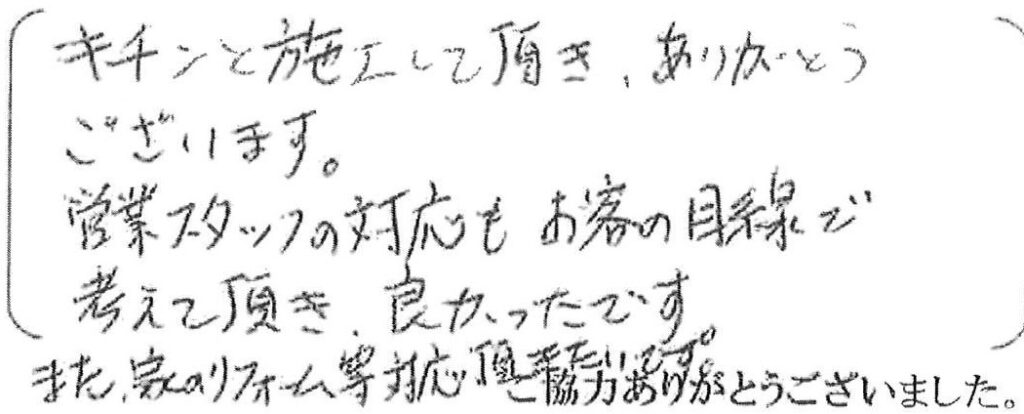 キチンと施工して頂き、ありがとう
ございます。
営業スタッフの対応も お客の目線で
考えて頂き、良かったです。
また、家のリフォーム等対応頂きたいです。
ご協力ありがとうございました。